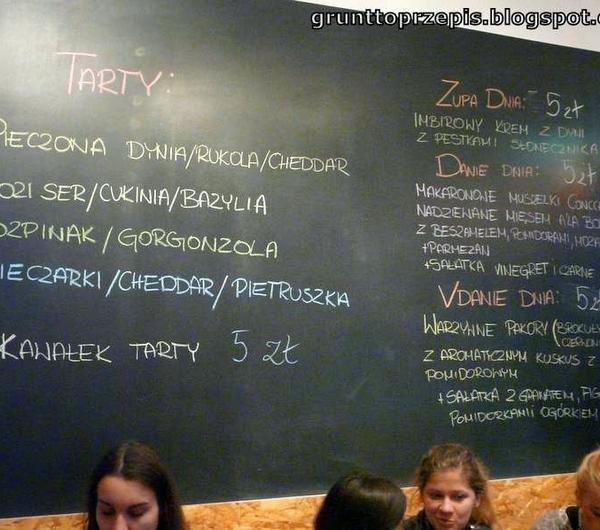 grunttoprzepis.blogspot.
TARTY:
PIECZONA DYNIA/RUKOLA/CHEDDAR
OZI SER/CUKINIA/BAZYLIA
OZPINAK/GORGONZOLA
IECZARKI/CHEDDAR/PIETRUSZKA
KAWAŁEK TARTY 5 zł
ZUPA DNIA: - 5 zł
IMBIROWY KREM Z DYNI
Z PESTKAMI SŁONECZNIKA
DANIE DNIA: 5 zł
MAKARONOWE MUSZELKI CONCC
NADZIEWANE MIĘSEM A'LA BO
Z BESZAMELEM, POMIDORAMI, MOZA
+PARMEZAN
+SAŁATKA VINEGRET I CZARNE
VDANIE DNIA: 5 z
WARZYWNE PAKORY (BROKUŁY
Z AROMATYCZNYM KUSKUS Z
POMIDOROWYM
+SAŁATKA Z GRANATEM, FIG
POMIDORKAMI I OGÓRKIEM